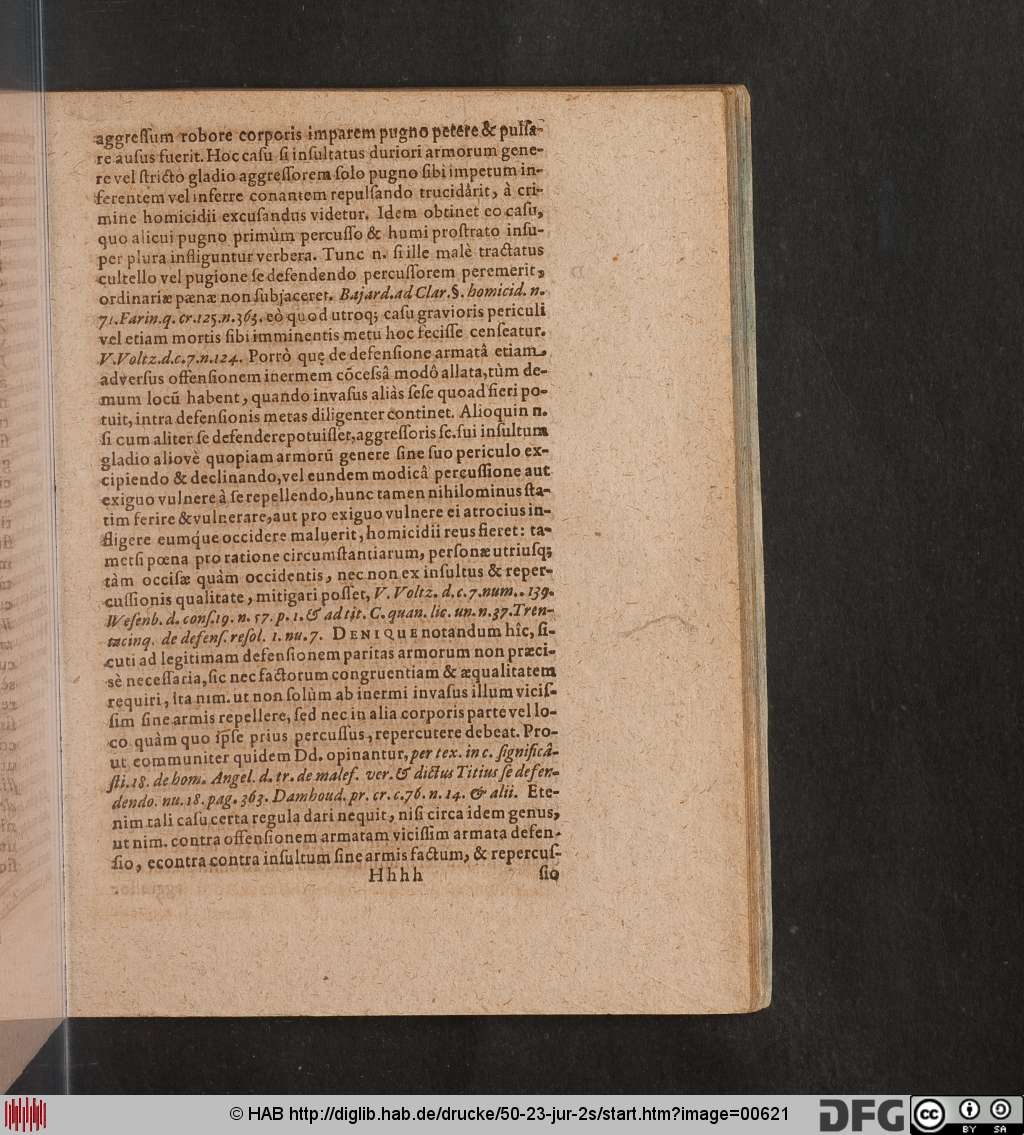 aggreſſum robore corporis imparem pugno petere & pulſa-
re auſus fuerit. Hoc caſu ſi inſultatus duriori armorum gene-
re vel ſtricto gladio aggreſſorem ſolo pugno ſibi impetum in-
ferentem vel inferre conantem repulſando trucidârit, à cri-
mine homicidii excuſandus videtur. Idem obtinet eo caſu,
quo alicui pugno primùm percuſſo & humi proſtrato inſu-
per plura infliguntur verbera. Tunc n. ſi ille malè tractatus
cultello vel pugione ſe defendendo percuſſorem peremerit,
ordinariæ pænæ non ſubjaceret. Bajard. ad Clar. §. homicid. n.
71. Farin. q. cr. 125. n. 363. eò quod utroq; caſu gravioris periculi
vel etiam mortis ſibi imminentis metu hoc feciſſe cenſeatur.
V. Voltz. d. c. 7. n. 124. Porrò quę de defenſione armatâ etiam
adverſus offenſionem inermem cõceſsâ modô allata, tùm de-
mum locũ habent, quando invaſus aliàs ſeſe quoad fieri po-
tuit, intra defenſionis metas diligenter continet. Alioquin n.
ſi cum aliter ſe defendere potuiſſet, aggreſſoris ſc. ſui inſultum
gladio aliovè quopiam armorũ genere ſine ſuo periculo ex-
cipiendo & declinando, vel eundem modicâ percuſſione aut
exiguo vulnere à ſe repellendo, hunc tamen nihilominus ſta-
tim ferire & vulnerare, aut pro exiguo vulnere ei atrocius in-
fligere eumque occidere maluerit, homicidii reus fieret: ta-
metſi pœna pro ratione circumſtantiarum, perſonæ utriuſq;
tàm occiſæ quàm occidentis, nec non ex inſultus & reper-
cuſſionis qualitate, mitigari poſſet, V. Voltz. d. c. 7. num.. 139.
Weſenb. d. conſ. 19. n. 57. p. 1. & ad tit. C. quan. lic. un. n. 37. Tren-
tacinq. de defenſ. reſol. 1. nu. 7. DENIQUE notandum hîc, ſi-
cuti ad legitimam defenſionem paritas armorum non præci-
sè neceſſaria, ſic nec factorum congruentiam & æqualitatem
requiri, ita nim. ut non ſolùm ab inermi invaſus illum viciſ-
ſim ſine armis repellere, ſed nec in alia corporis parte vel lo-
co quàm quo ipſe prius percuſſus, repercutere debeat. Pro-
ut communiter quidem Dd. opinantur, per tex. in c. ſignificâ-
ſti. 18. de hom. Angel. d. tr. de malef. ver. & dictus Titius ſe defen-
dendo. nu. 18. pag. 363. Damhoud. pr. cr. c. 76. n. 14. & alii. Ete-
nim tali caſu certa regula dari nequit, niſi circa idem genus,
ut nim. contra offenſionem armatam viciſſim armata defen-
ſio, econtra contra inſultum ſine armis factum, & repercuſ-
Hhhh ſio
© HAB http://diglib.hab.de/drucke/50-23-jur-2s/start.htm?image=00621
DFG cc BY SA